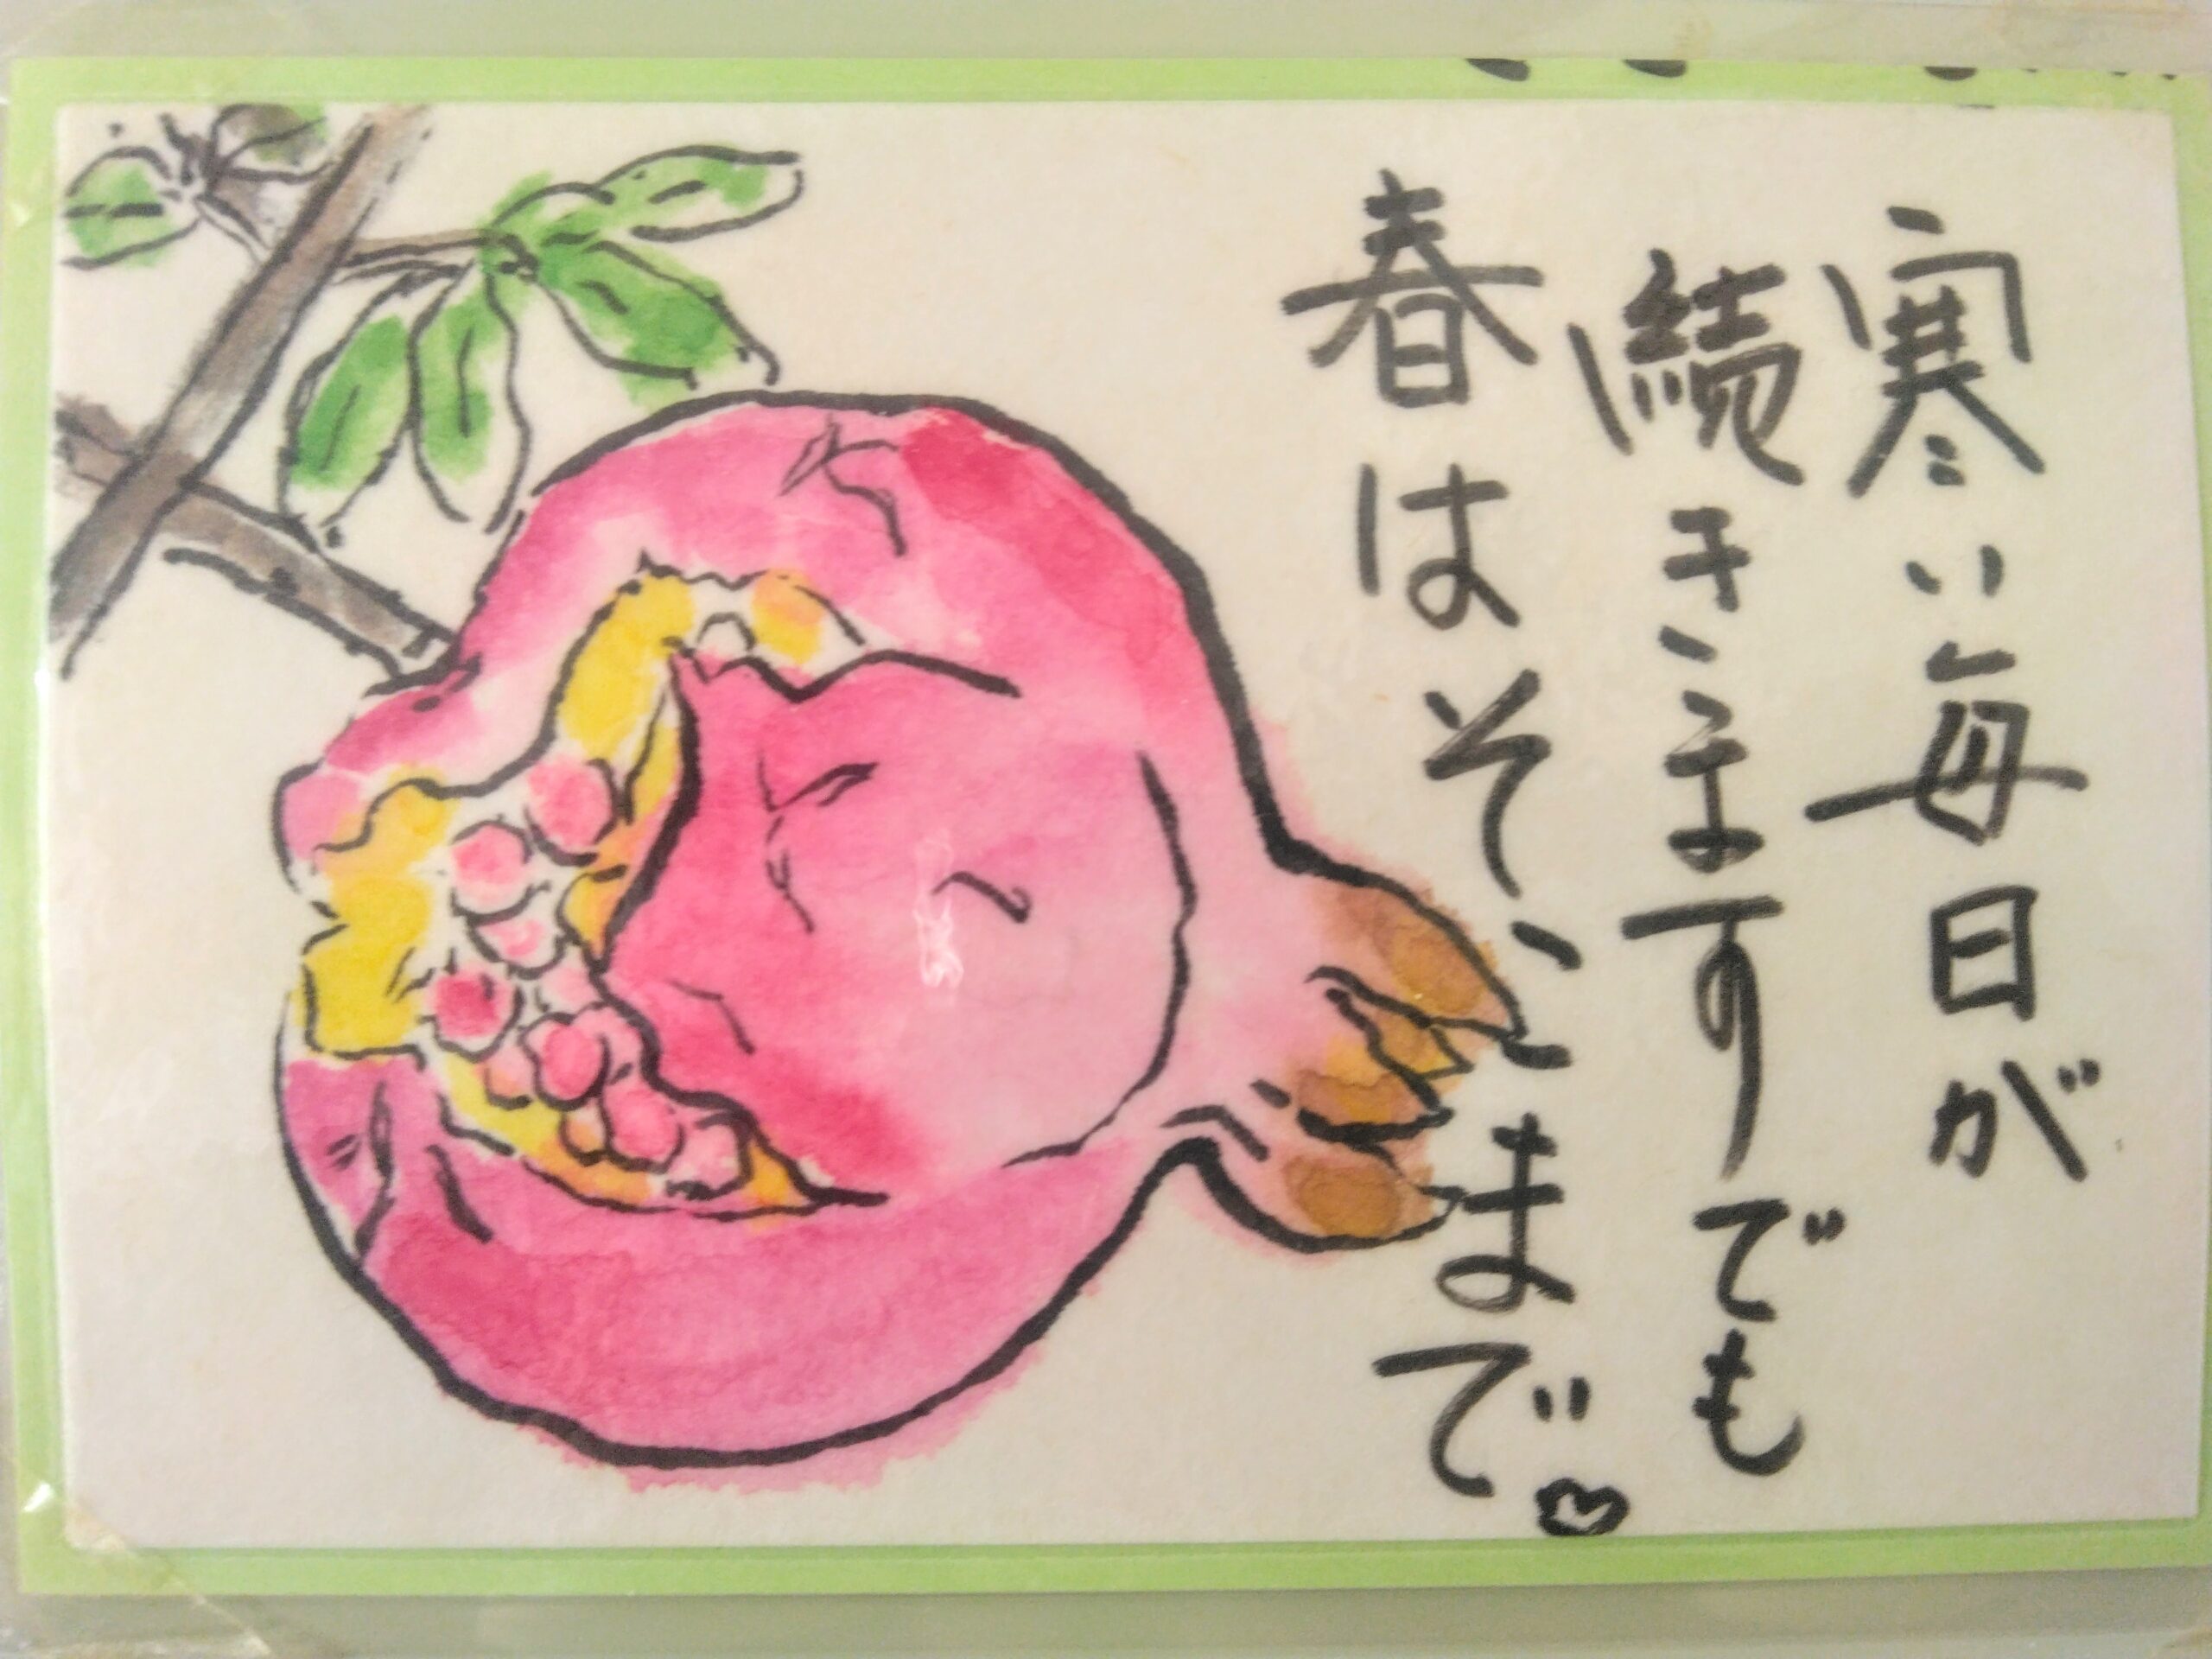 寒い毎日が
続きますでも
春はそこまで